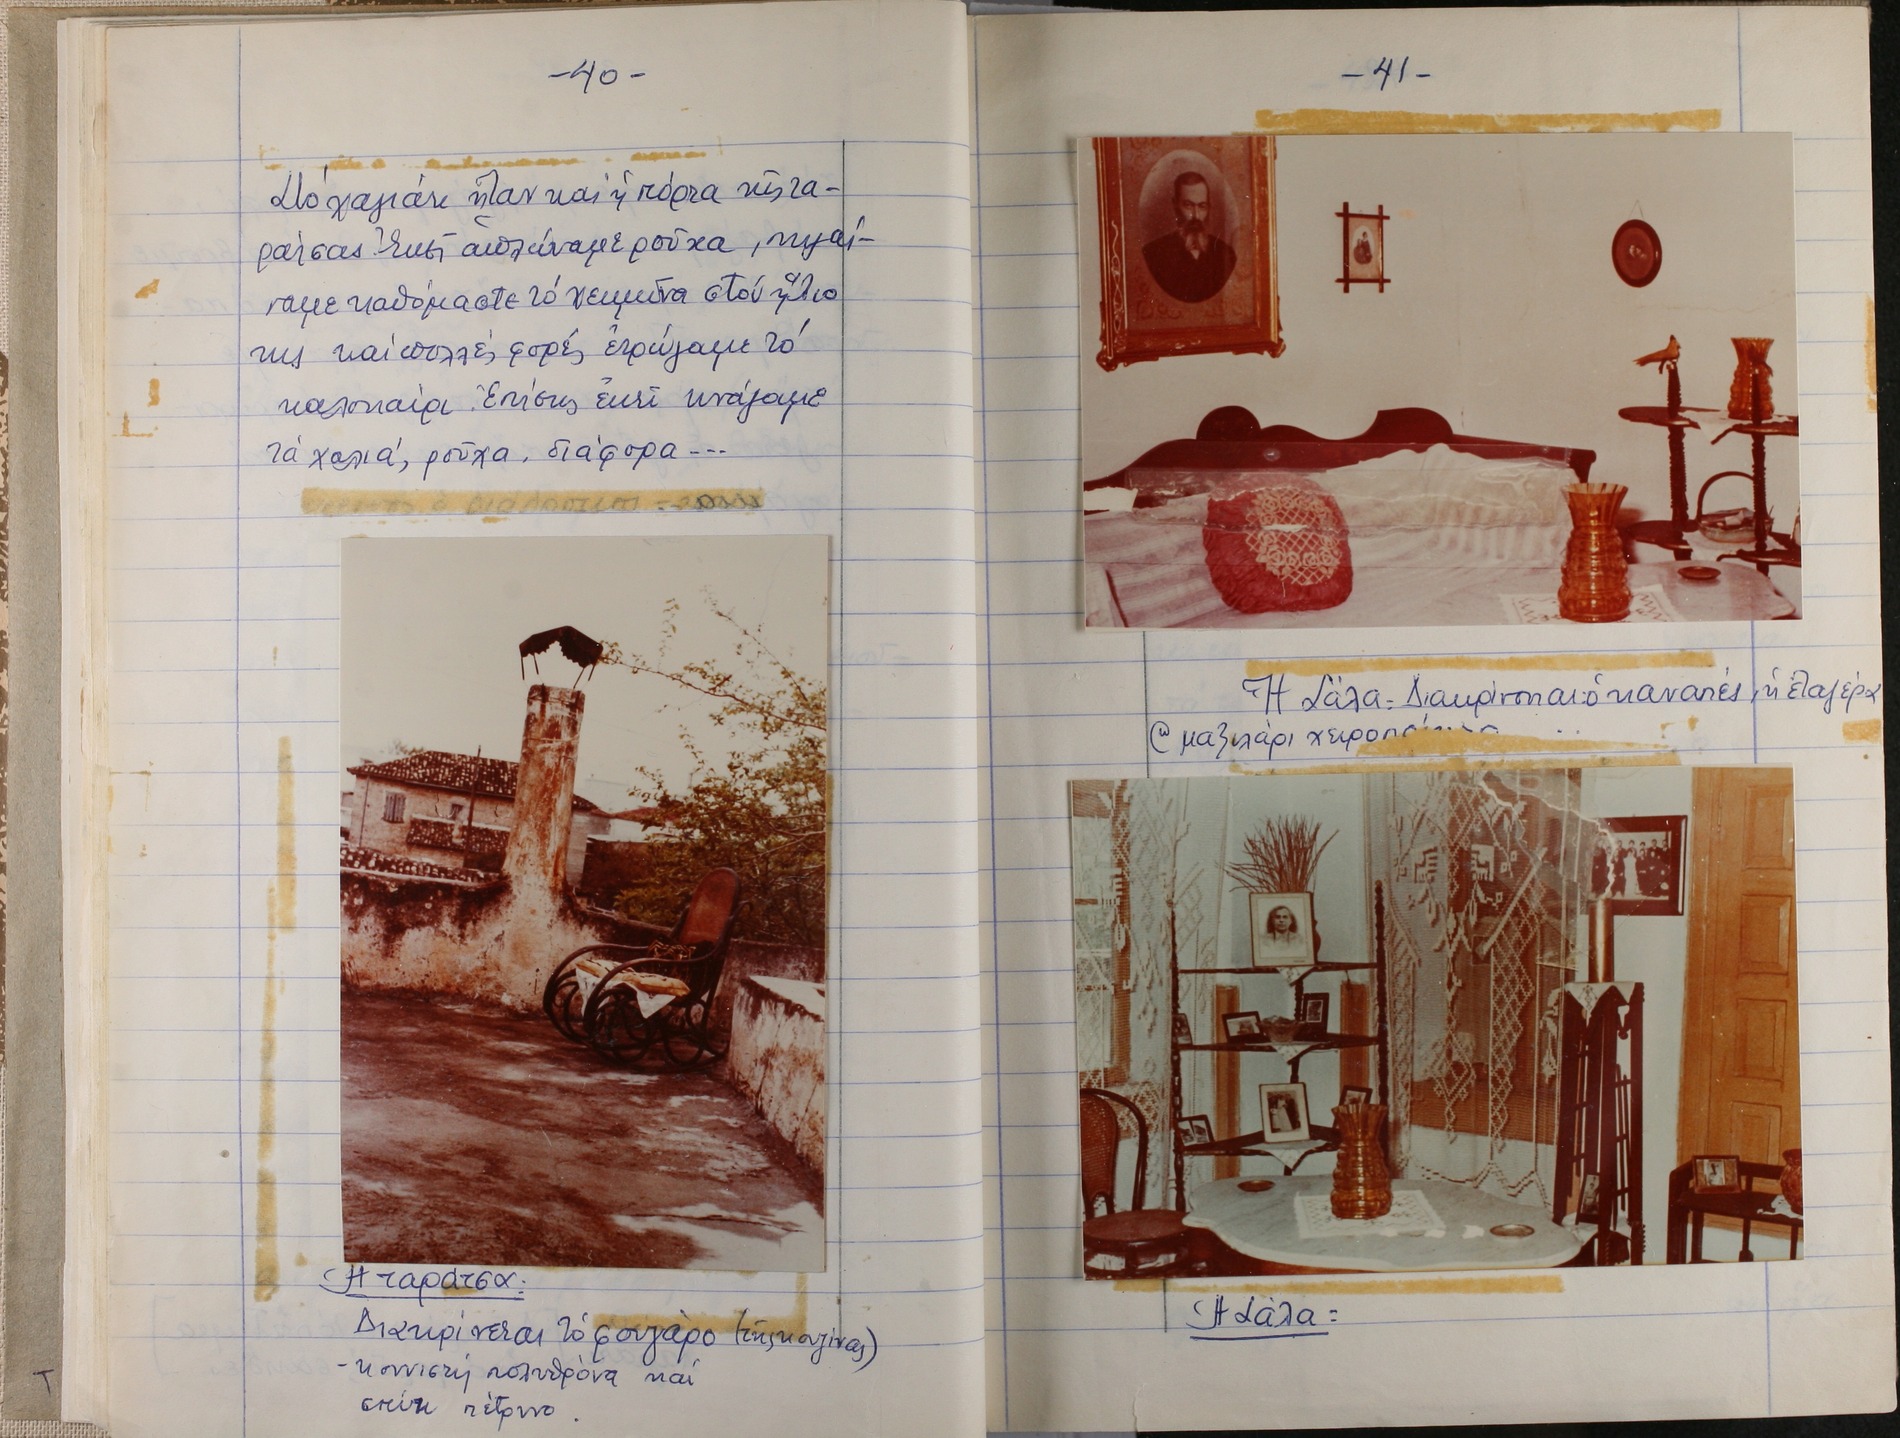 -40-
Στό χαγιάτι ἦταν καί ἡ πόρτα τῆς τα-
ράτσας. Ἐκεῖ ἁπλώναμε ροῦχα, πηγαί-
ναμε καθόμαστε τό χειμῶνα στόν ἥλιο
της καί πολλές φορές ἐτρώγαμε τό
καλοκαίρι. Ἐπίσης ἐκεῖ τινάζαμε
τά χαλιά, ροῦχα, διάφορα ---
Ἡ ταράτσα:
Διακρίνεται τό φουγάρο (τῆς κουζίνας)
- κουνιστή πολυθρόνα καί
σπίτι πέτρινο.
-41-
Ἡ Σάλα = Διακρίνονται ὁ καναπές, ἡ ἐταζέρα
μαξιλάρι
Ἡ Σάλα =